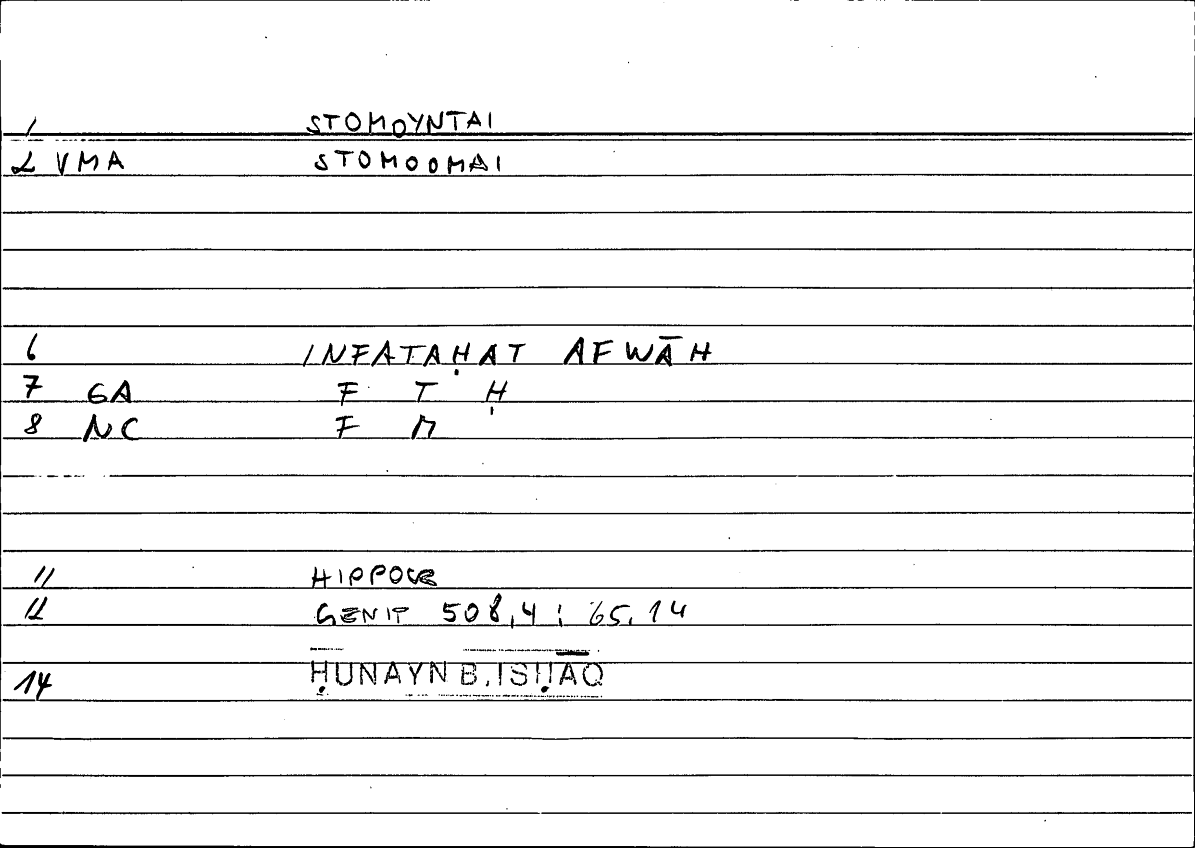 1 STOMOYNTAI
2 VMA STOMOOMAI
6 INFATAḤAT AFWĀH
7 GA F T Ḥ
8 NC F M
11 HIPPOCR
12 GENIT 508,4; 65,14
14 ḤUNAYN B.ISḤĀQ